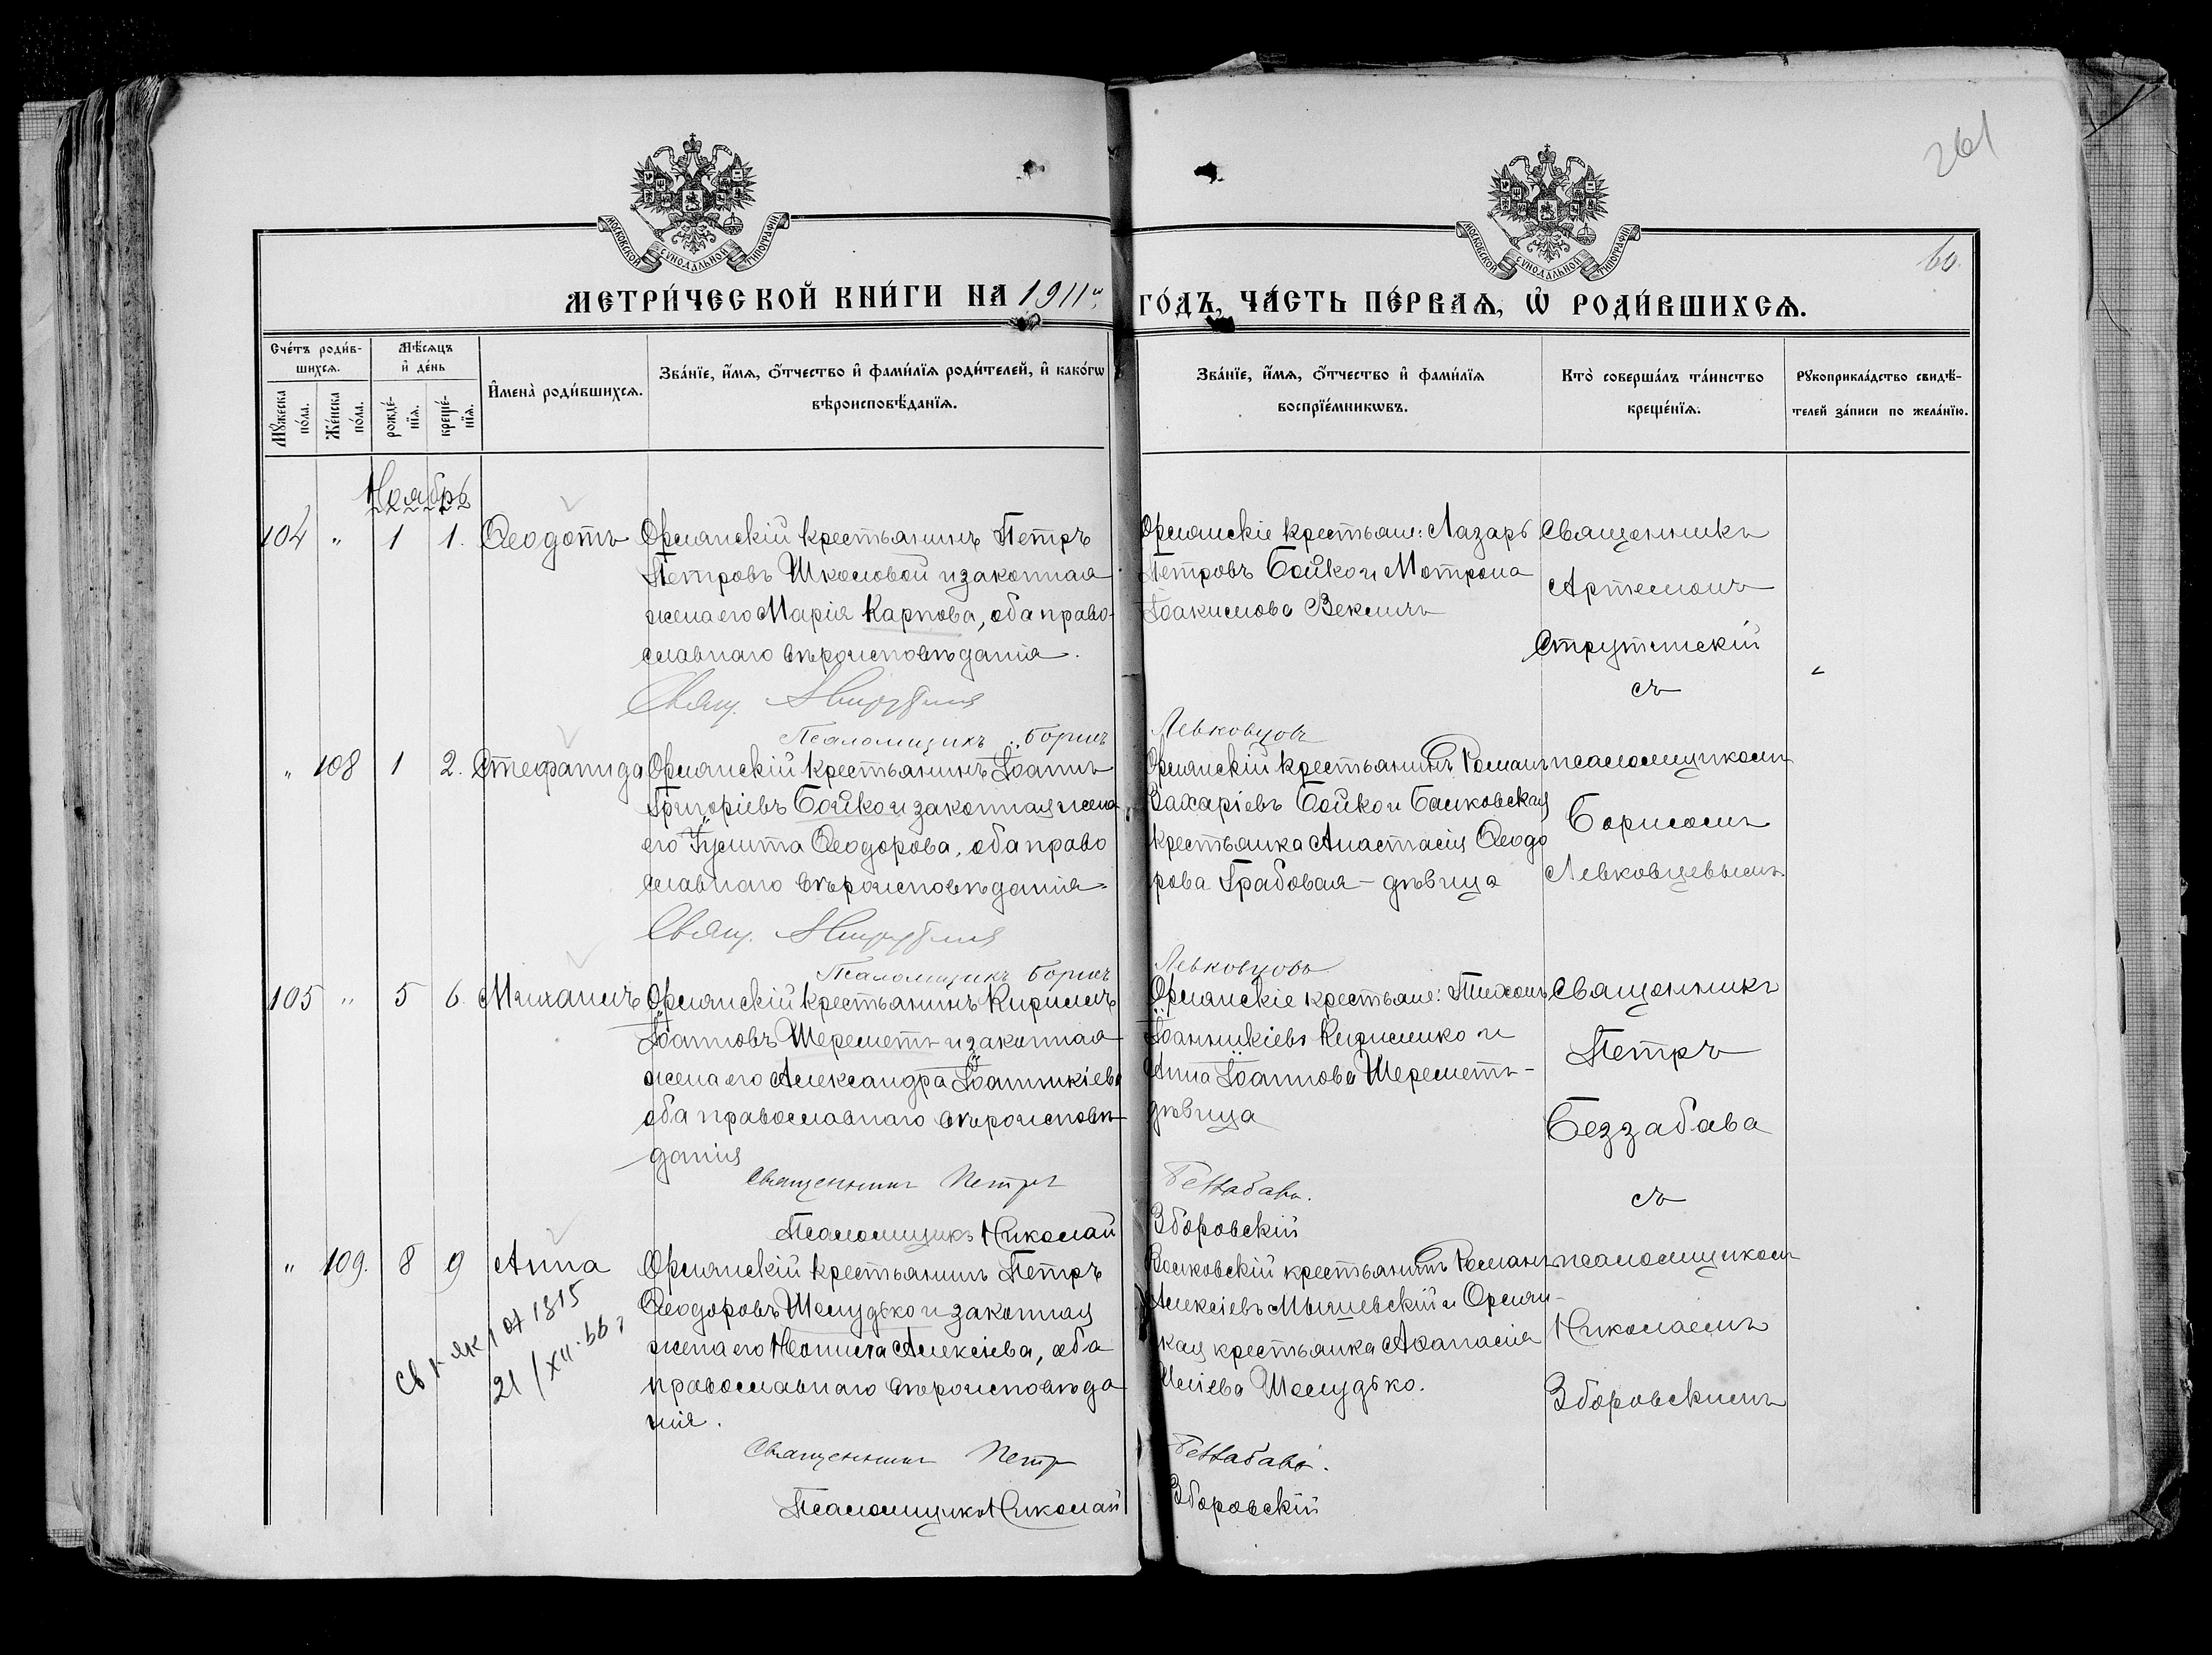 261
60.
МОСКОВСКОЙ СѴНОДАЛЬНОЙ ТИПОГРАФІИ
МОСКОВСКОЙ СѴНОДАЛЬНОЙ ТИПОГРАФІИ
МЕТРИ́ЧЕСКОЙ КНИ́ГИ НА 1911й ГО́ДЪ, ЧА́СТЬ ПЕ́РВАѦ, Ѡ҆ РОДИ́ВШИХСѦ.
Сче́тъ роди́в-
шихсѧ.
Мѣ́сѧцъ
и҆ де́нь
Мꙋ́жеска
по́ла.
Же́нска
по́ла.
рожде́-
нїѧ.
креще́-
нїѧ.
И҆мена̀ роди́вшихсѧ.
Зва́нїе, и҆́мѧ, ѻ҆́тчество и҆ фами́лїѧ роди́телей, и҆ како́гѡ
вѣроисповѣ́данїѧ.
Зва́нїе, и҆́мѧ, ѻ҆́тчество и҆ фами́лїѧ
воспрїе́мникѡвъ.
Кто̀ соверша́лъ та́инство
креще́нїѧ.
Рꙋкоприкла́дство свидѣ́-
телей за́писи по жела́нїю.
Ноябрь
104 " 1 1. Ѳеодотъ
Орлянскій крестьянинъ Петръ
Петровъ Школовой и законная
жена его Марія Карпова, оба право-
славнаго вѣроисповѣданія.
Свящ.
Псаломщикъ Борисъ Левковцовъ
Орлянскіе крестьяне: Лазарь
Петровъ Бойко и Мотрона
Іоакимова Векличъ
Священникъ
Артемонъ
Струтинскій
съ
" 108 1 2. Стефанида
Орлянскій крестьянинъ Іоаннъ
Григоріевъ Бойко и законная жена
его Іулитта Ѳеодорова, оба право
славнаго вѣроисповѣданія.
Свящ.
Псаломщикъ Борисъ Левковцовъ
Орлянскій крестьянинъ Романъ
Захаріевъ Бойко и Балковская
крестьянка Анастасія Ѳеодо
рова Грабовая - дѣвица
псаломщикомъ
Борисомъ
Левковцевымъ.
105 " 5 6. Михаилъ
Орлянскій крестьянинъ Кириллъ
Іоанновъ Шереметъ и законная
жена его Александра Іоанникіева
оба православнаго вѣроисповѣ-
данія
Священникъ Петръ Беззабава.
Псаломщикъ Николай Зборовскій
Орлянскіе крестьяне: Тихонъ
Іоанникіевъ Кириленко и
Анна Іоаннова Шереметъ -
дѣвица
Священникъ
Петръ
Беззабава
съ
" 109. 8 9 Анна
21/XII. 66г
Орлянскій крестьянинъ Петръ
Ѳеодоровъ Шелудько и законная
жена его Нонила Алексіева, оба
православнаго вѣроисповѣда
нія.
Священникъ Петръ Беззабава.
Псаломщикъ Николай Зборовскій
крестьянинъ Романъ
Алексіевъ и Орлян-
ская крестьянка Аѳанасія
Шелудько.
псаломщикомъ
Николаемъ
Зборовскимъ